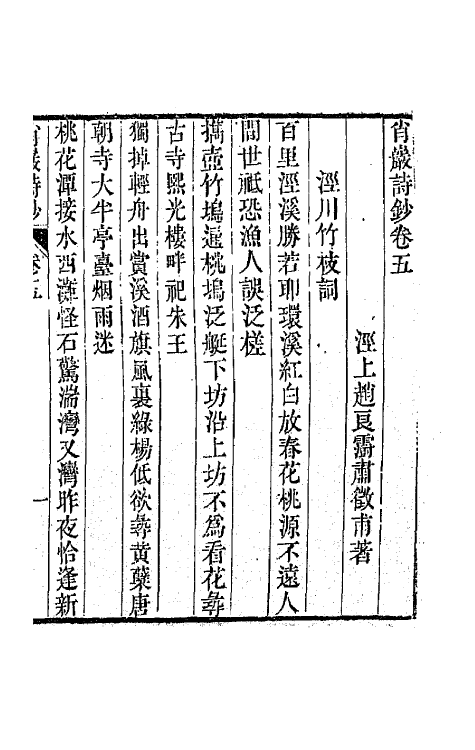 肖巖詩鈔卷五
涇上趙良霨肅徵甫著
涇川竹枝詞
百里涇溪勝若耶環溪紅白放春花桃源不遠人
間世祗恐漁人誤泛槎
攜壺竹塢還桃塢泛艇下坊沿上坊不為看花尋
古寺熙光樓畔祀朱王
獨掉輕舟出賞溪酒旗風裏綠楊低欲尋黄蘗唐
朝寺大半亭臺烟雨迷
桃花潭接水西灘怪石驚湍灣又灣昨夜恰逢新
肖巖詩鈔
卷五
一